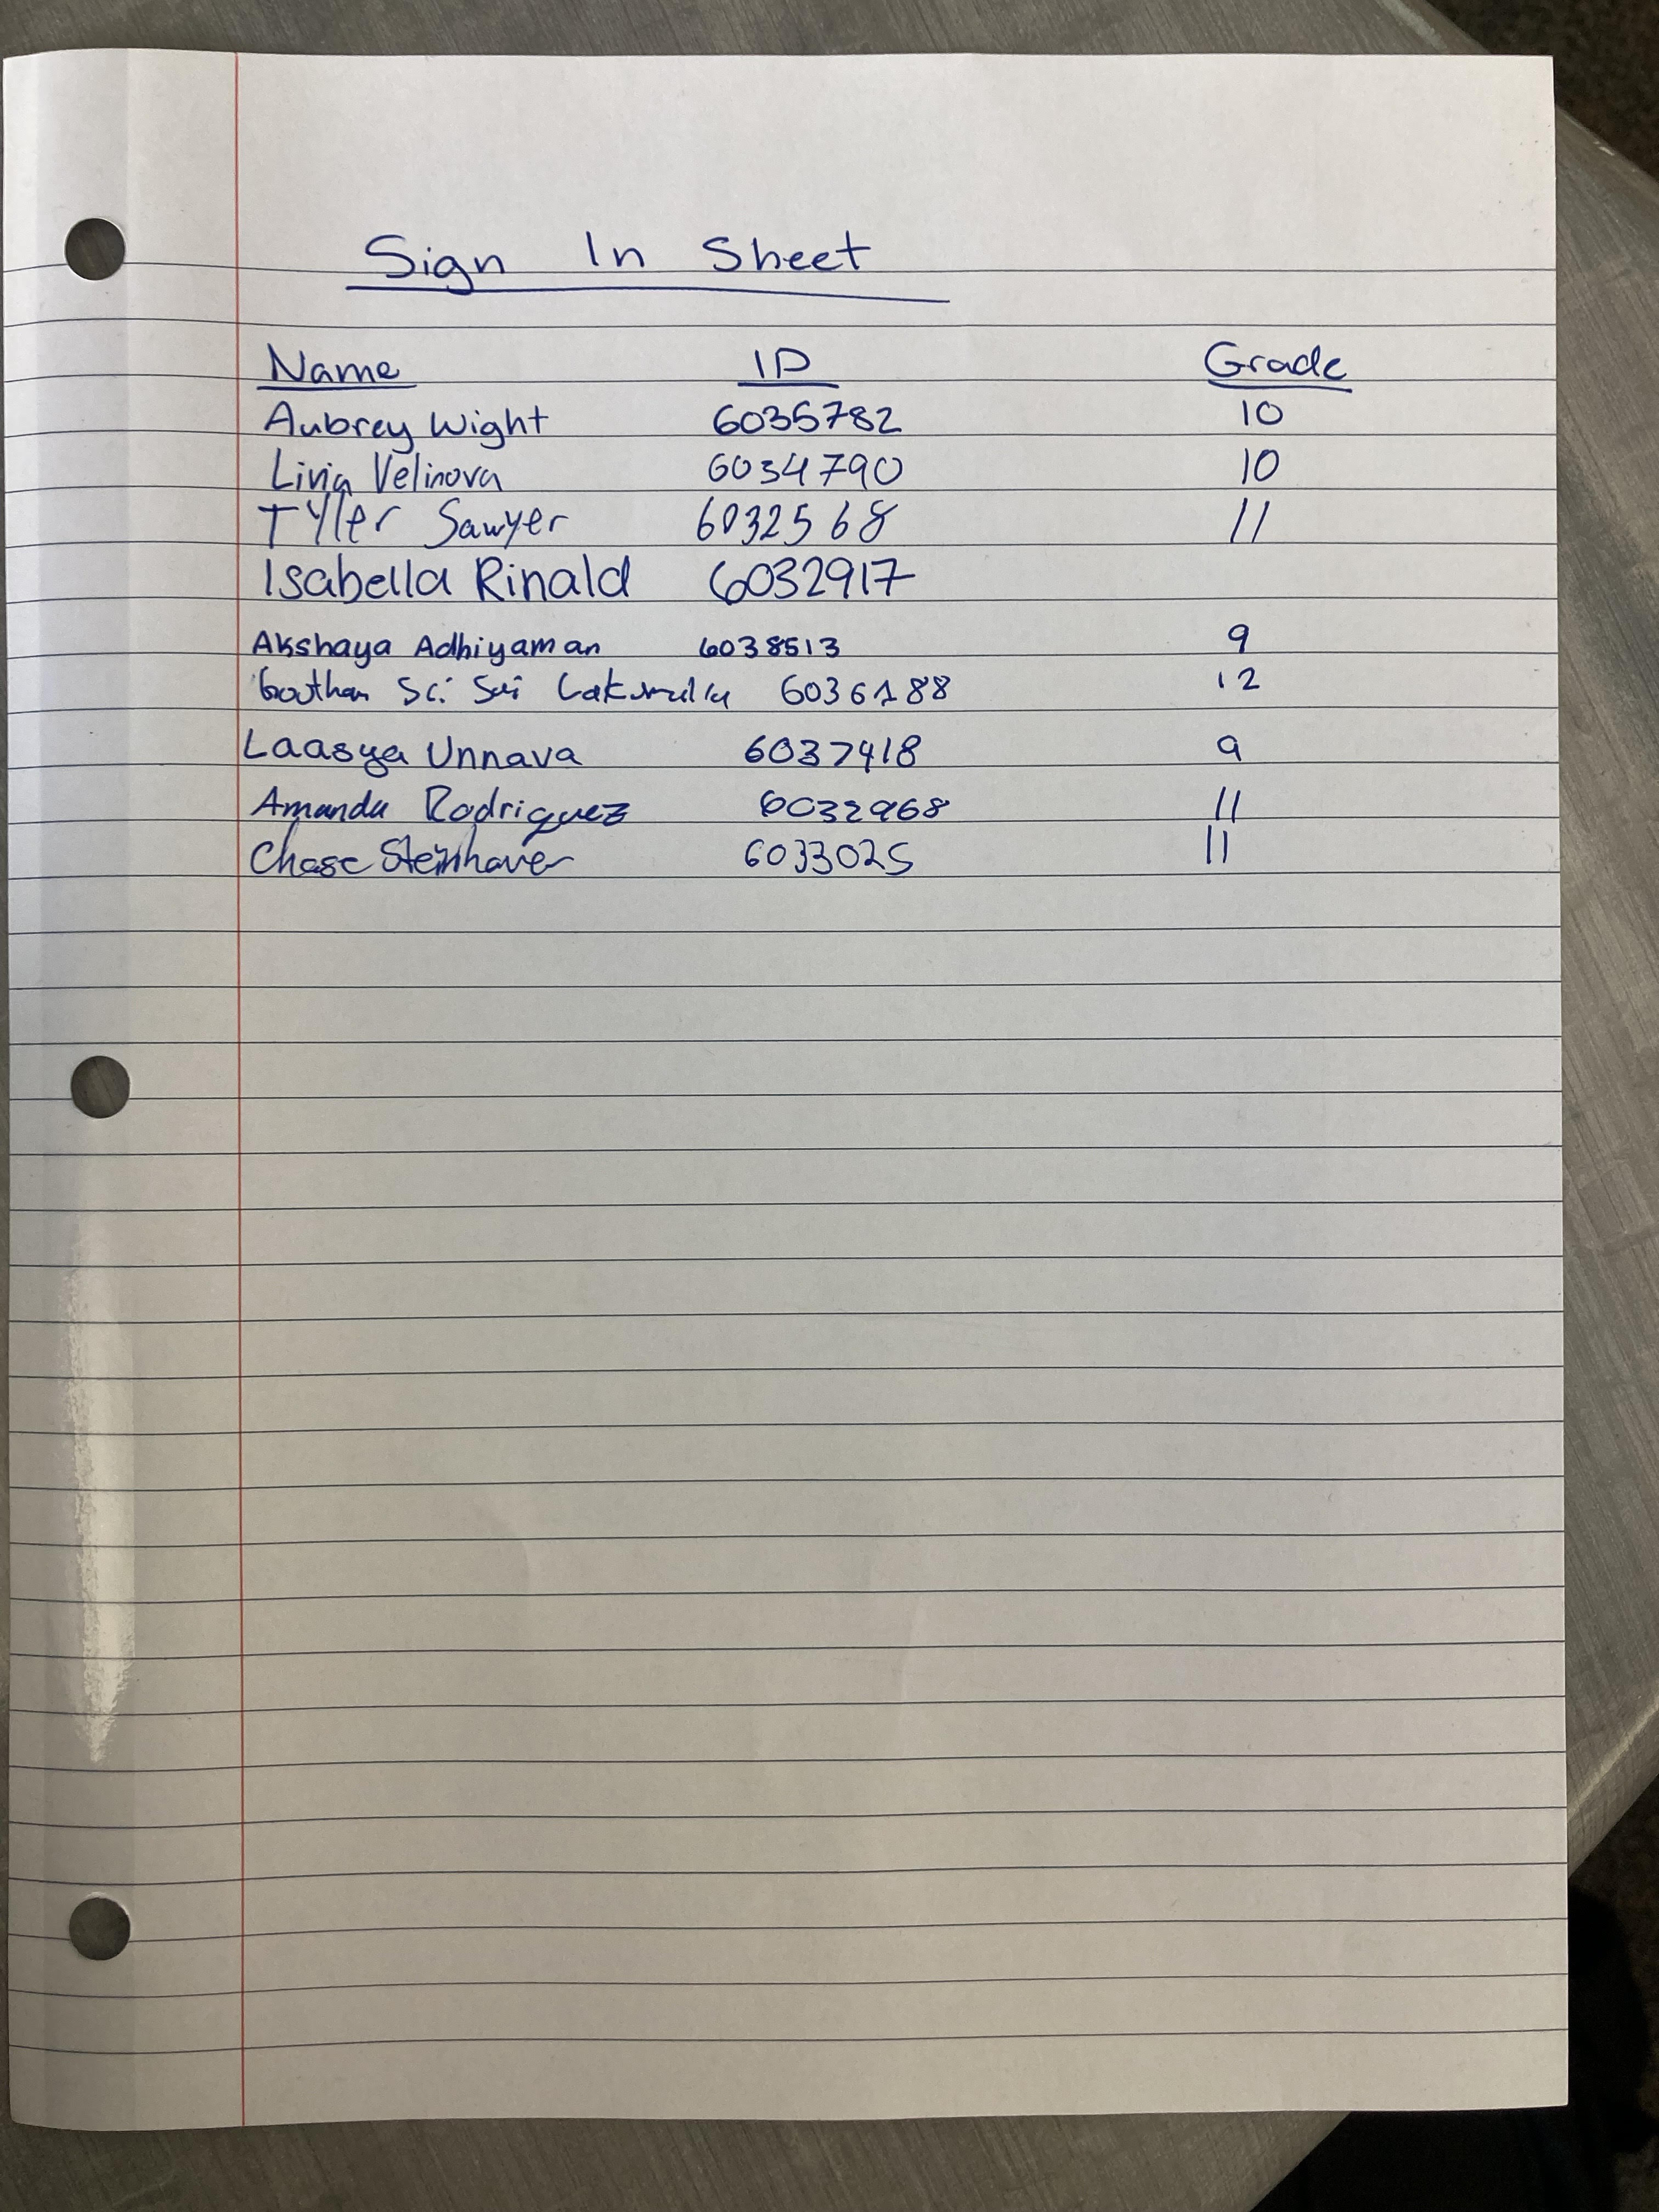 Sign In Sheet
Name ID Grade
Aubrey Wight 6035782 10
Livia Velinova 6034790 10
Tyller Sawyer 6032568 11
Isabella Rinald 6032917
Akshaya Adhiyaman 6038513 9
Sai 6036188 12
Laasya Unnava 6037418 9
Amanda Rodriguez 6032968 11
Chase Steinhaver 6033025 11